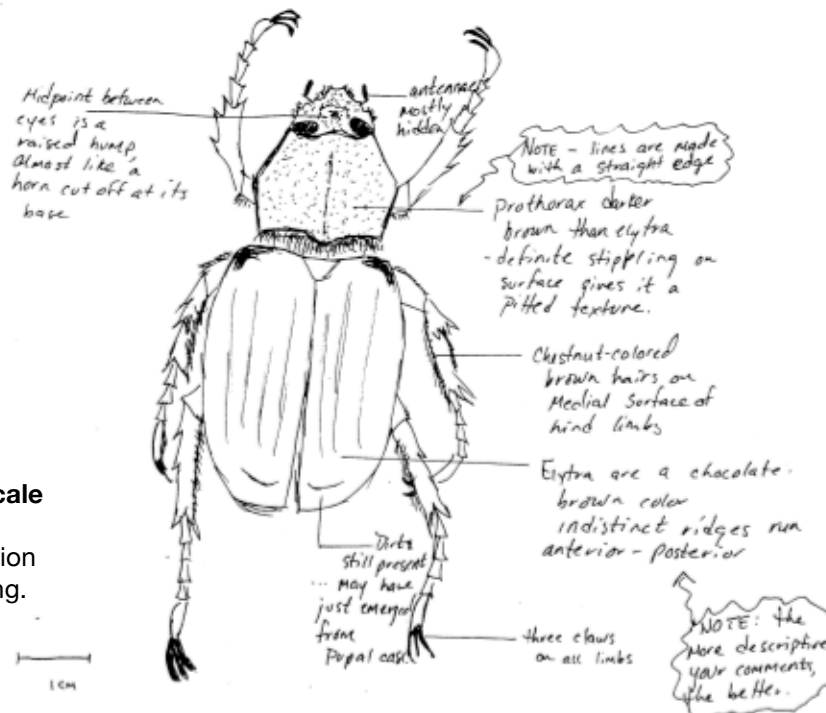 Midpoint between
eyes is a
raised hump,
almost like a
horn cut off at its
base
antennae
mostly
hidden
NOTE - lines are made
with a straight edge
Prothorax darker
brown than elytra
-definite stippling on
surface gives it a
pitted texture.
Chestnut-colored
brown hairs on
Medial Surface of
hind limbs
Elytra are a chocolate-
brown color
indistinct ridges run
anterior - posterior
cale
ion
ng.
Dirt
still present
... may have
just emerged
from
Pupal case.
three claws
on all limbs
NOTE: the
more descriptive
your comments,
the better.
1 cm